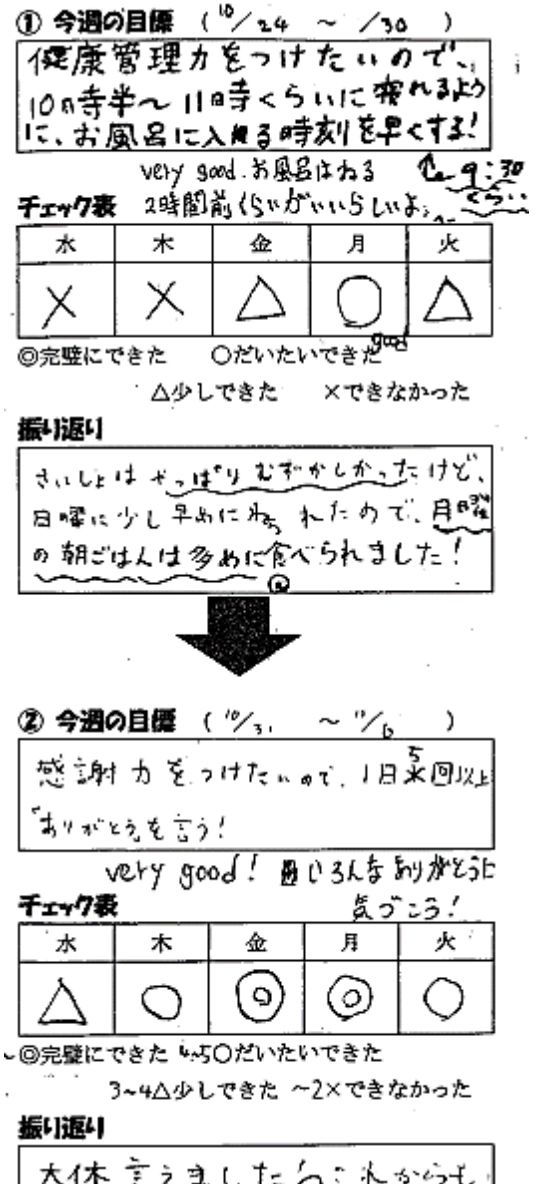 ① 今週の目標 (10/24 ~ /30 )
健康管理力をつけたいので、
10時半~11時くらいに寝れるよう
に、お風呂に入る時刻を早くする!
very good. お風呂はねる
9:30
くらい
チェック表 2時間前くらいがいいらしいよ。
水 木 金 月 火
× × △ ○ △
good
◎完璧にできた ○だいたいできた
△少しできた ×できなかった
振り返り
さいしょはやっぱりむずかしかったけど、
日曜に少し早めにねられたので、月曜
の朝ごはんは多めに食べられました!
② 今週の目標 (10/31 ~ 11/6 )
感謝力をつけたいので、1日5回以上
「ありがとう」を言う!
very good! いろんなありがとうに
気づこう!
チェック表
水 木 金 月 火
△ ○ ◎ ◎ ○
~◎完璧にできた 4~5○だいたいできた
3~4△少しできた ~2×できなかった
振り返り
大体言えました